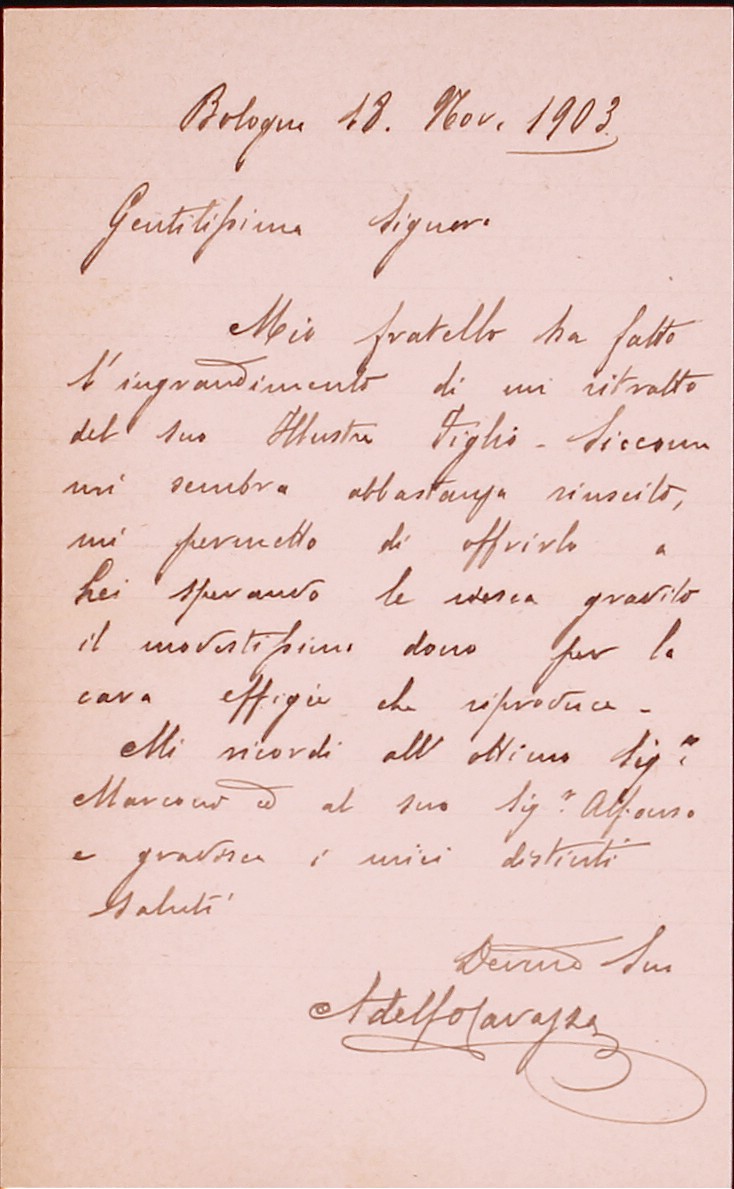 Bologna 18. Nov. 1903
Gentilissima Signora
Mio fratello ha fatto
l'ingrandimento di un ritratto
del suo Illustre Figlio - Siccome
mi sembra abbastanza riuscito,
mi permetto di offrirlo a
Lei sperando le riesca gradito
il modestissimo dono per la
cara effigie che riproduce -
Mi ricordi all'ottimo Sig.r
Marconi ed al suo Sig.r Alfonso
e gradisca i miei distinti
saluti
Devmo Suo
Adelfo Cavazza